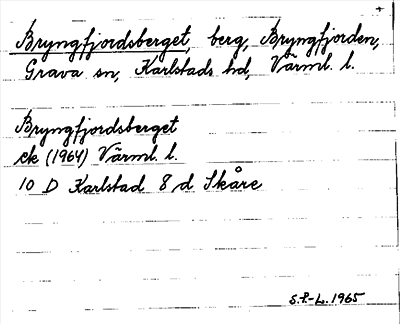 +
Bryngfjordsberget, berg, Bryngfjorden,
Grava sn, Karlstads hd, Värml. l.
Bryngfjordsberget
ek (1964) Värml. l.
10 D Karlstad 8 d Skåre
S.P-L. 1965